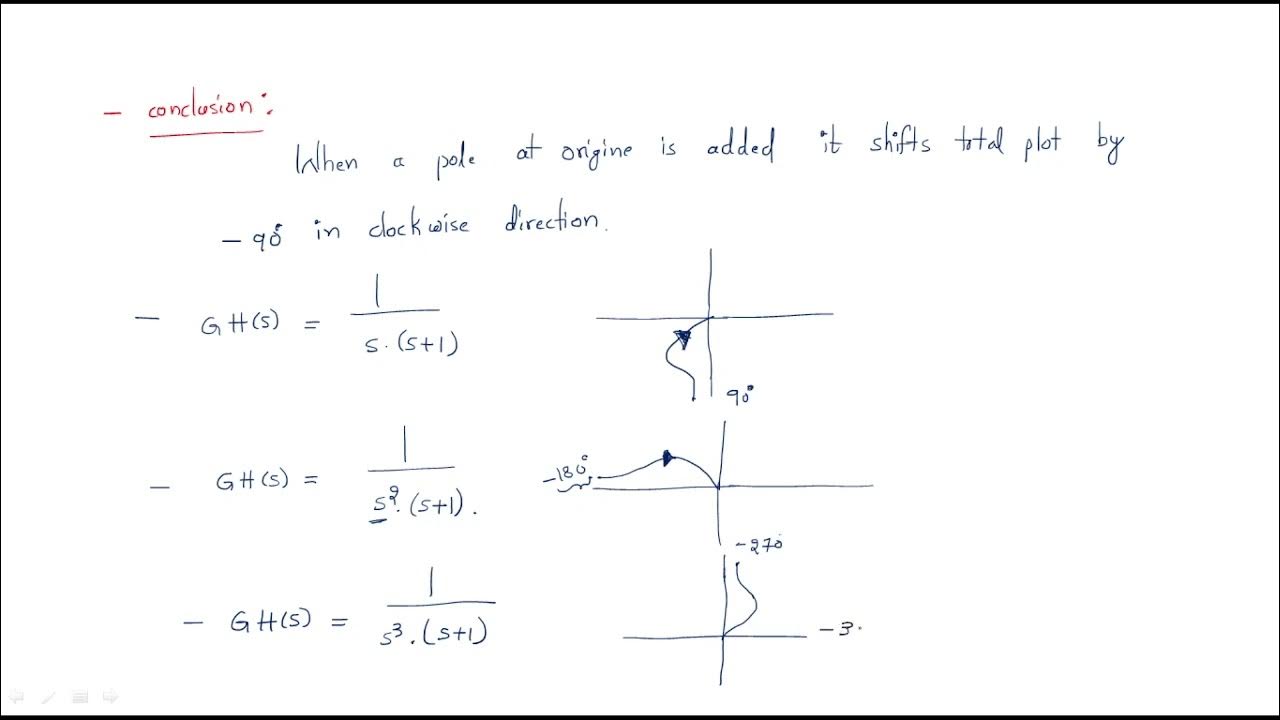 – conclusion:
When a pole at origine is added it shifts total plot by
– 90° in clockwise direction.
– GH(s) = 1 / s.(s+1)
90°
– GH(s) = 1 / s².(s+1).
–180°
–270°
– GH(s) = 1 / s³.(s+1)
–3